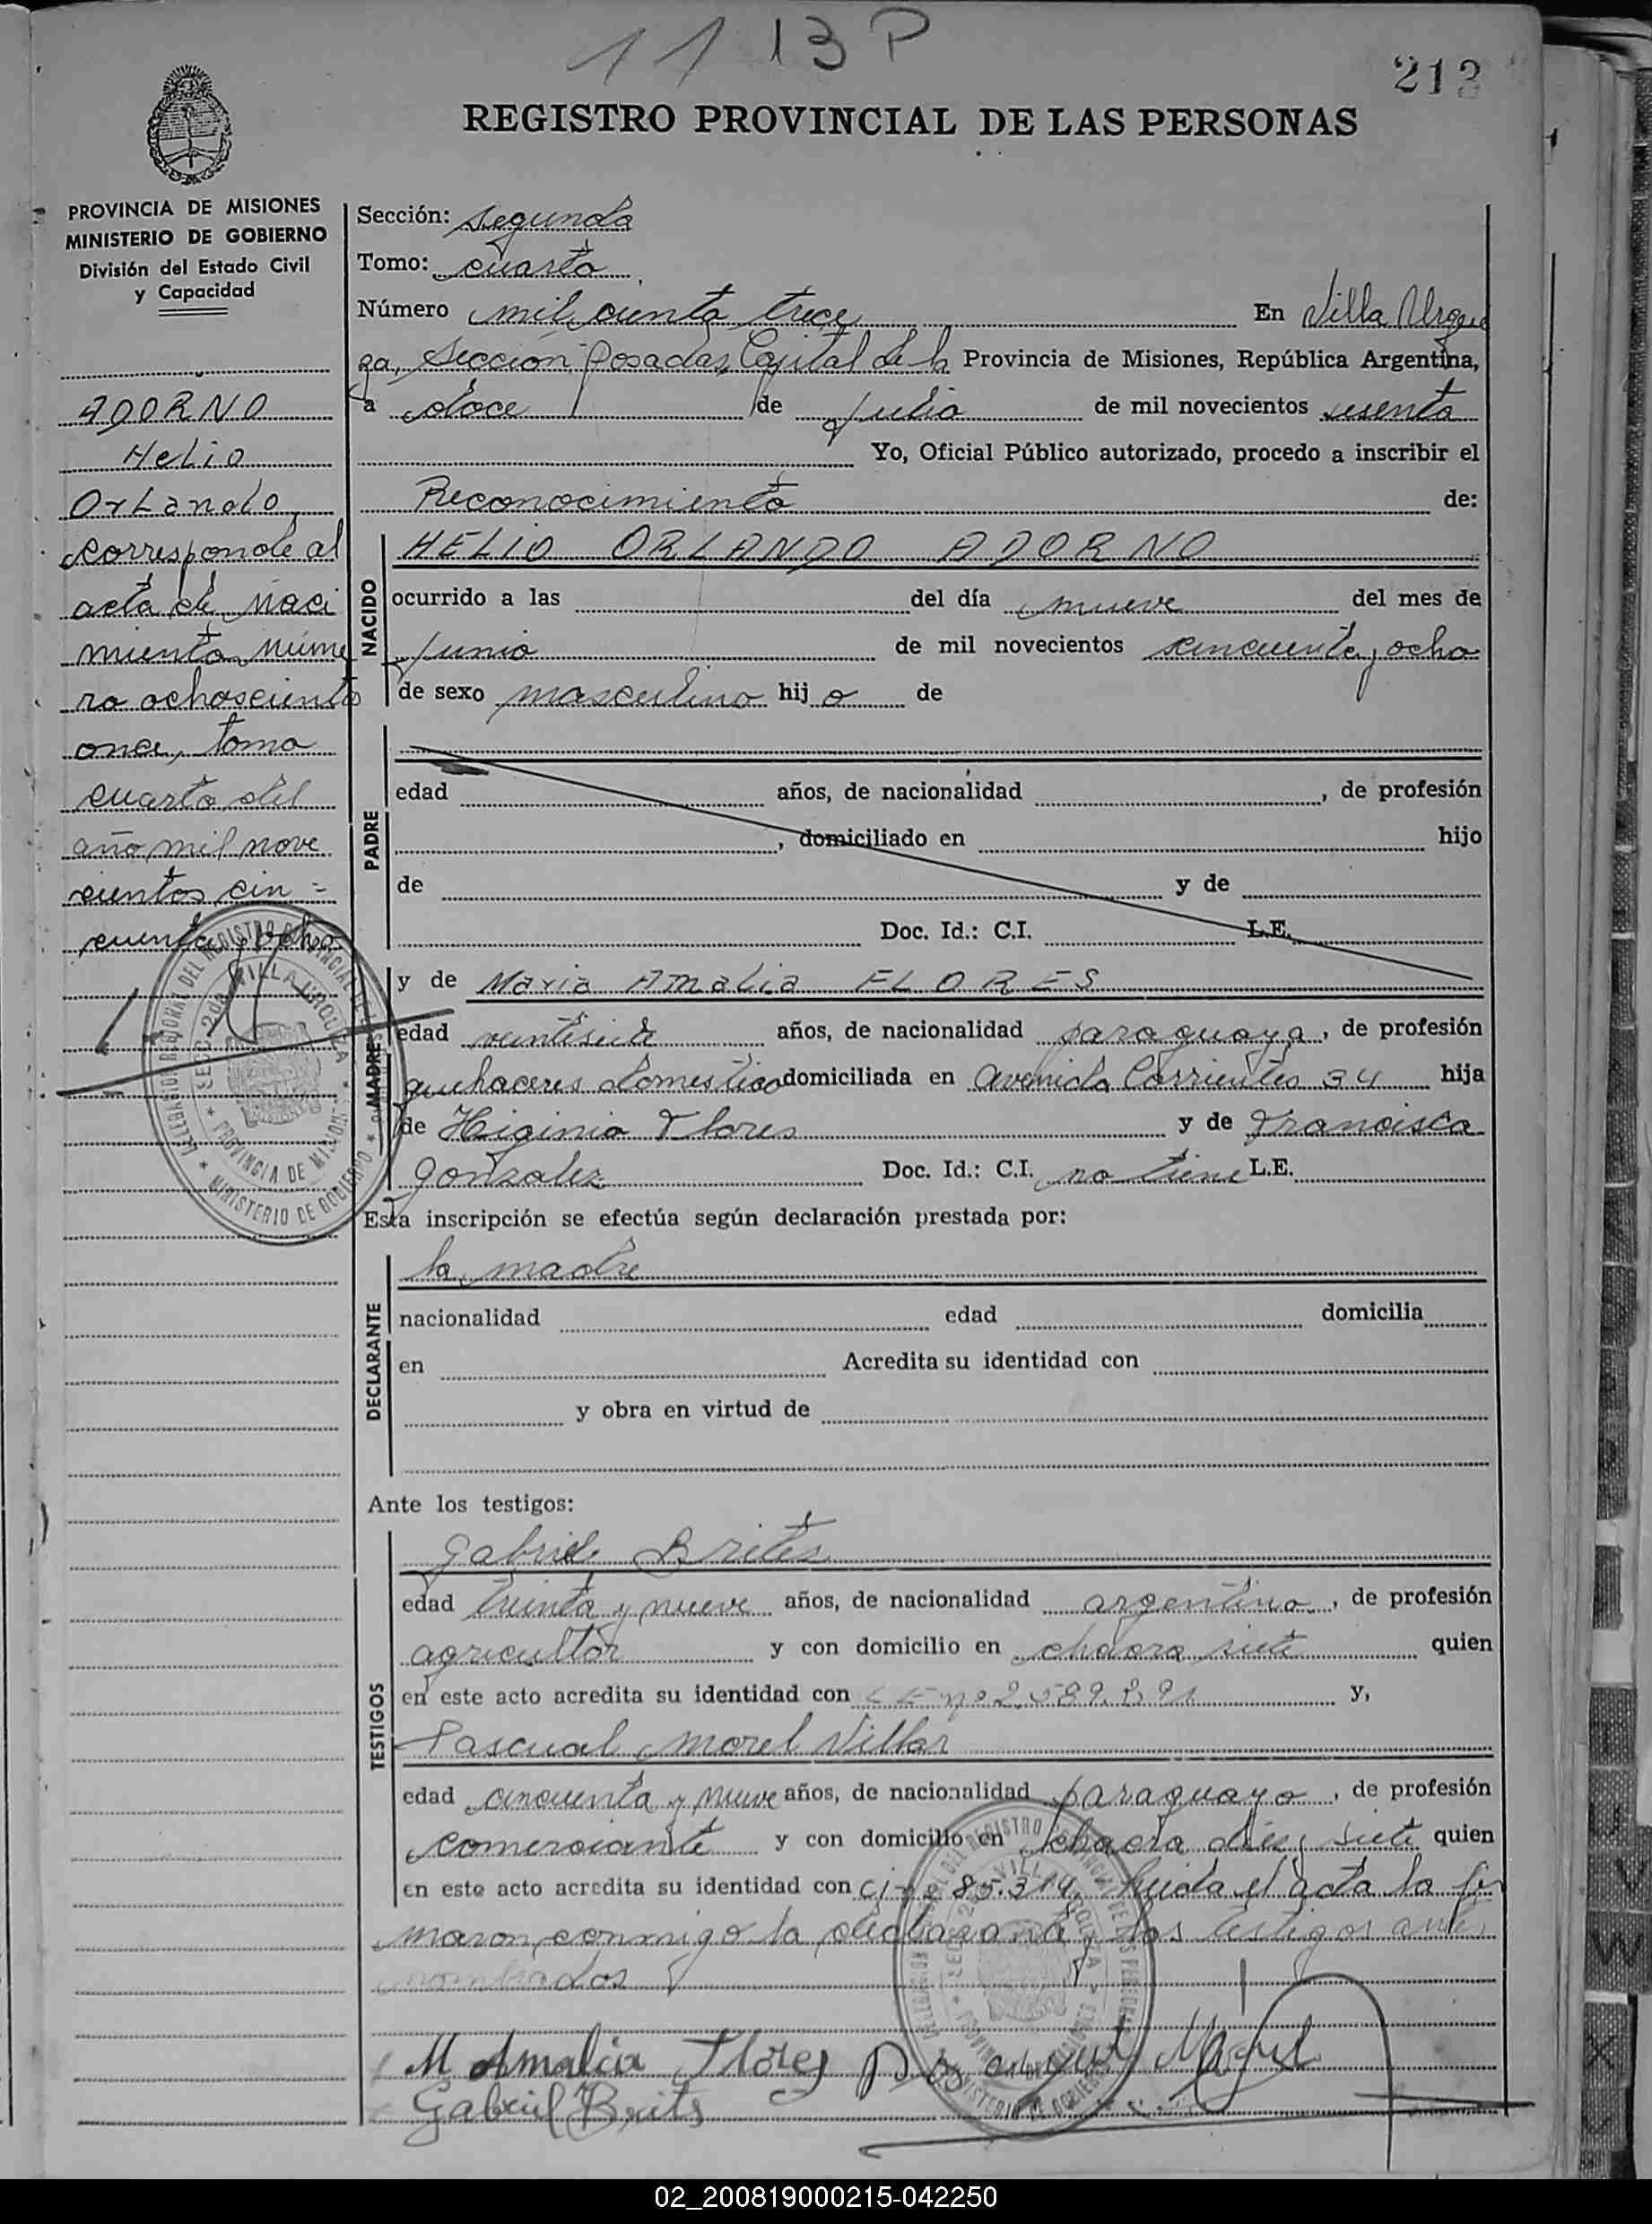 11 13 P
213
REGISTRO PROVINCIAL DE LAS PERSONAS
PROVINCIA DE MISIONES
MINISTERIO DE GOBIERNO
División del Estado Civil
y Capacidad
ADORNO
Helio
Orlando
corresponde al
acta de naci
miento núme
ro ochosciento
once, tomo
cuarto del
año mil nove
cientos cin =
cuenta y ocho
Sección: segunda
Tomo: cuarto
Número mil ciento trece En Villa Urqui
za, Sección Posadas, Capital de la Provincia de Misiones, República Argentina,
a doce de julio de mil novecientos sesenta
Yo, Oficial Público autorizado, procedo a inscribir el
Reconocimiento de:
NACIDO
HELIO ORLANDO ADORNO
ocurrido a las del día nueve del mes de
junio de mil novecientos cincuenta y ocho
de sexo masculino hij o de
PADRE
edad años, de nacionalidad , de profesión
, domiciliado en hijo
de y de
Doc. Id.: C.I. L.E.
MADRE
y de Maria Amalia FLORES
edad veintisiete años, de nacionalidad paraguaya, de profesión
quehaceres domestico domiciliada en Avenida Corrientes 34 hija
de Higinio Flores y de Francisca
Gonzalez Doc. Id.: C.I. no tiene L.E.
Esta inscripción se efectúa según declaración prestada por:
DECLARANTE
la madre
nacionalidad edad domicilia
en Acredita su identidad con
y obra en virtud de
Ante los testigos:
TESTIGOS
Gabriel Brites
edad treinta y nueve años, de nacionalidad argentino, de profesión
agricultor y con domicilio en chacra siete quien
en este acto acredita su identidad con L E nº 2.589.891 y,
Pascual Morel Villar
edad cincuenta y nueve años, de nacionalidad paraguayo, de profesión
comerciante y con domicilio en chacra dies y siete quien
en este acto acredita su identidad con C.I. nº 85.314, leída el acta la fir
maron conmigo la declarante y los testigos antes
nombrados
M Amalia Flores
Gabriel Brites
02_200819000215-042250